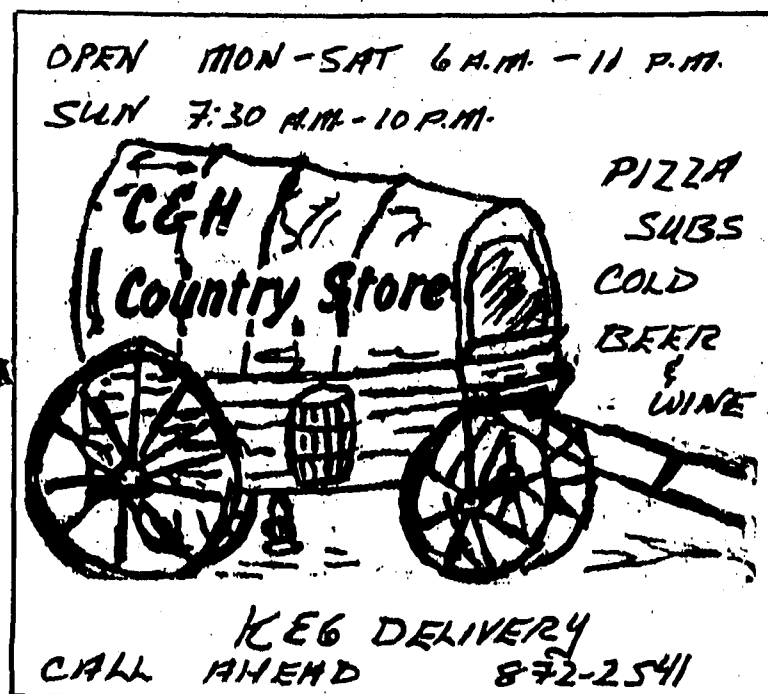 OPEN MON-SAT 6 A.M. - 11 P.M.
SUN 7:30 A.M.-10 P.M.
C&H
Country Store
PIZZA
SUBS
COLD
BEER
&
WINE
KEG DELIVERY
CALL AHEAD 872-2541